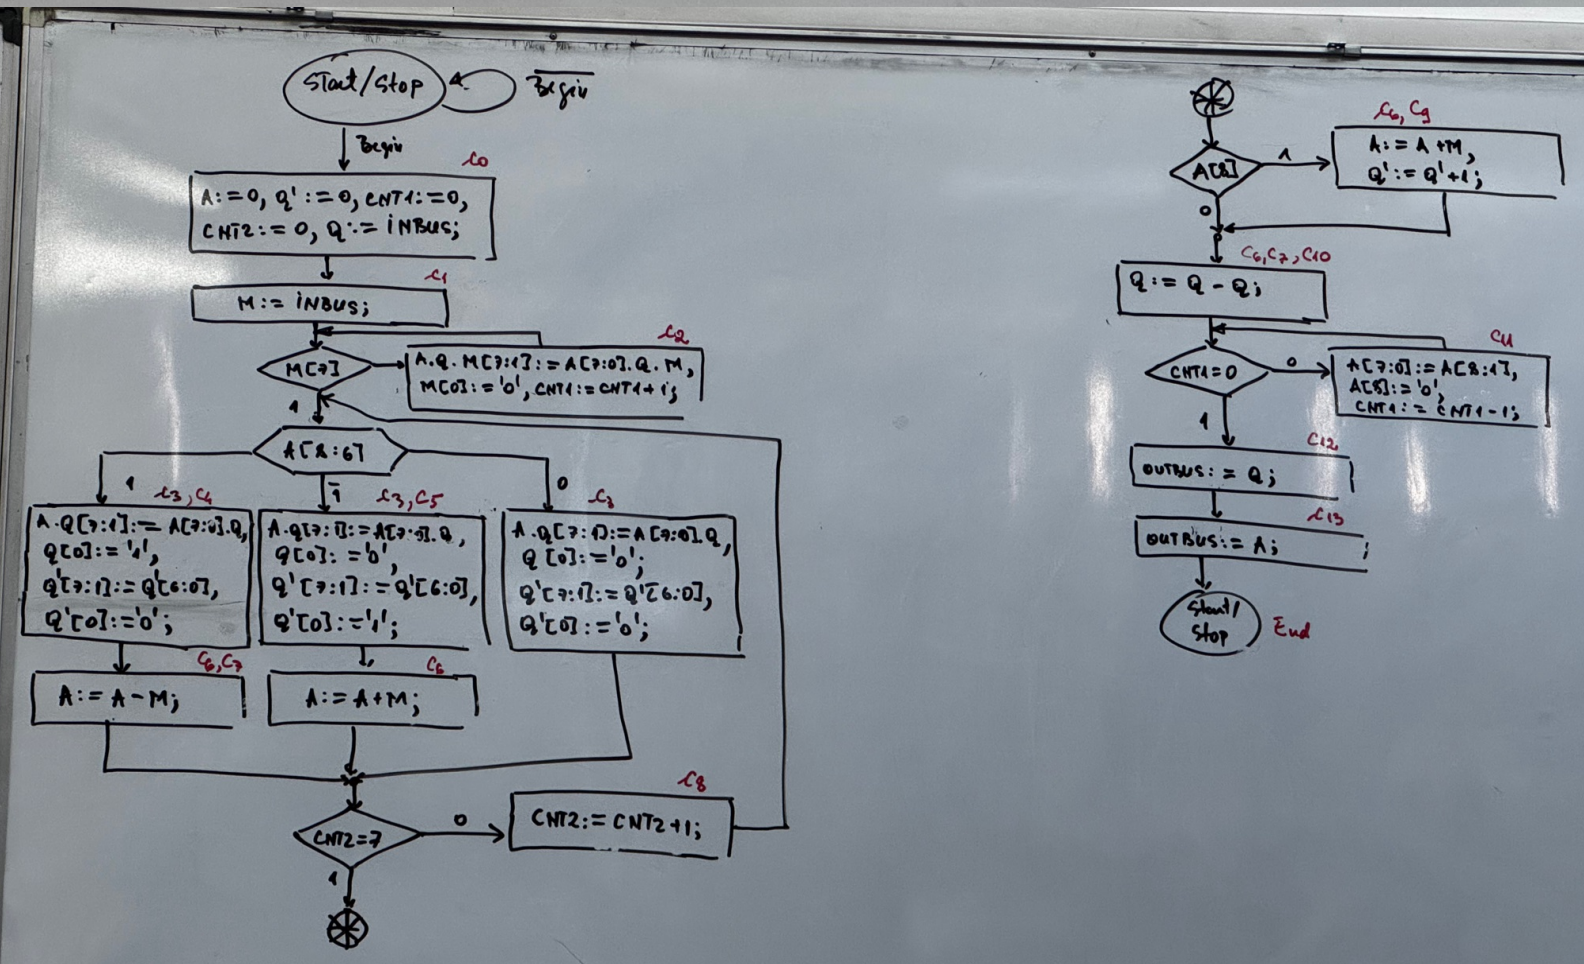 Start/Stop
Begin
Begin
C0
A:=0, Q':=0, CNT1:=0,
CNT2:=0, Q:=INBUS;
C1
M:= INBUS;
C2
M[7]
A.Q.M[7:1]:=A[7:0].Q.M,
M[0]:='0', CNT1:=CNT1+1;
1
A[8:6]
1
C3, C4
A.Q[7:1]:= A[7:0].Q,
Q[0]:='1',
Q'[7:1]:=Q'[6:0],
Q'[0]:='0';
C6, C7
A:= A-M;
1̅
C3, C5
A.Q[7:1]:=A[7:0].Q,
Q[0]:='0',
Q'[7:1]:=Q'[6:0],
Q'[0]:='1';
C6
A:= A+M;
0
C3
A.Q[7:1]:=A[7:0].Q,
Q[0]:='0';
Q'[7:1]:=Q'[6:0],
Q'[0]:='0';
CNT2=7
0
C8
CNT2:=CNT2+1;
1
A[8]
1
C6, C9
A:= A+M,
Q':= Q'+1;
0
C6, C7, C10
Q:= Q - Q;
CNT1=0
0
C11
A[7:0]:=A[8:1],
A[8]:='0',
CNT1:=CNT1-1;
1
C12
OUTBUS:= Q;
C13
OUTBUS:= A;
Start/
Stop
End